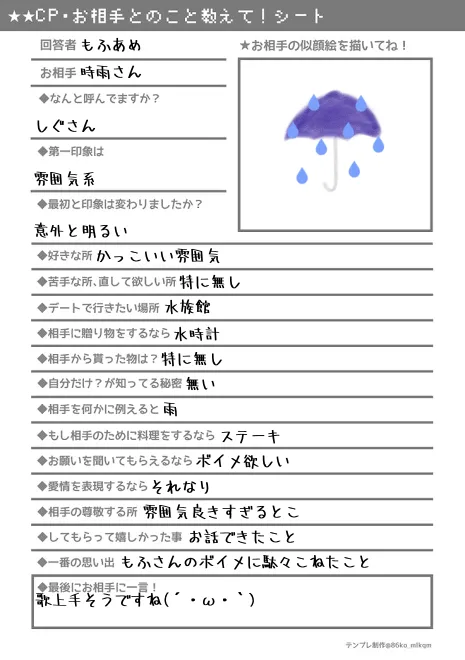 ★★CP・お相手とのこと教えて！シート
回答者 もふあめ
★お相手の似顔絵を描いてね！
お相手 時雨さん
◆なんと呼んでますか？
しぐさん
◆第一印象は
雰囲気系
◆最初と印象は変わりましたか？
意外と明るい
◆好きな所 かっこいい雰囲気
◆苦手な所、直して欲しい所 特に無し
◆デートで行きたい場所 水族館
◆相手に贈り物をするなら 水時計
◆相手から貰った物は？ 特に無し
◆自分だけ？が知ってる秘密 無い
◆相手を何かに例えると 雨
◆もし相手のために料理をするなら ステーキ
◆お願いを聞いてもらえるなら ボイメ欲しい
◆愛情を表現するなら それなり
◆相手の尊敬する所 雰囲気良きすぎるとこ
◆してもらって嬉しかった事 お話できたこと
◆一番の思い出 もふさんのボイメに駄々こねたこと
◆最後にお相手に一言！
歌上手そうですね(´・ω・｀)
テンプレ制作@86ko_mlkqm